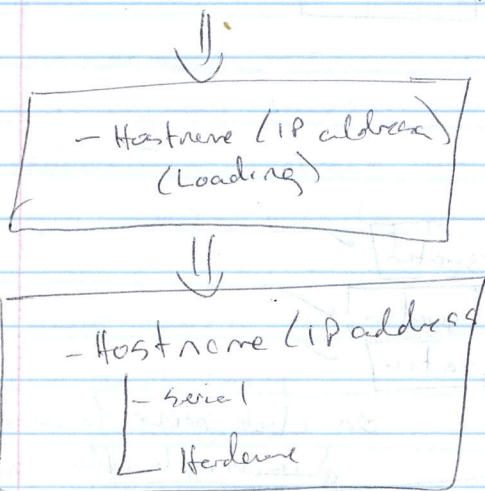 - Hostname (IP address)
(Loading)
- Hostname (IP address
- Serial
Hardware